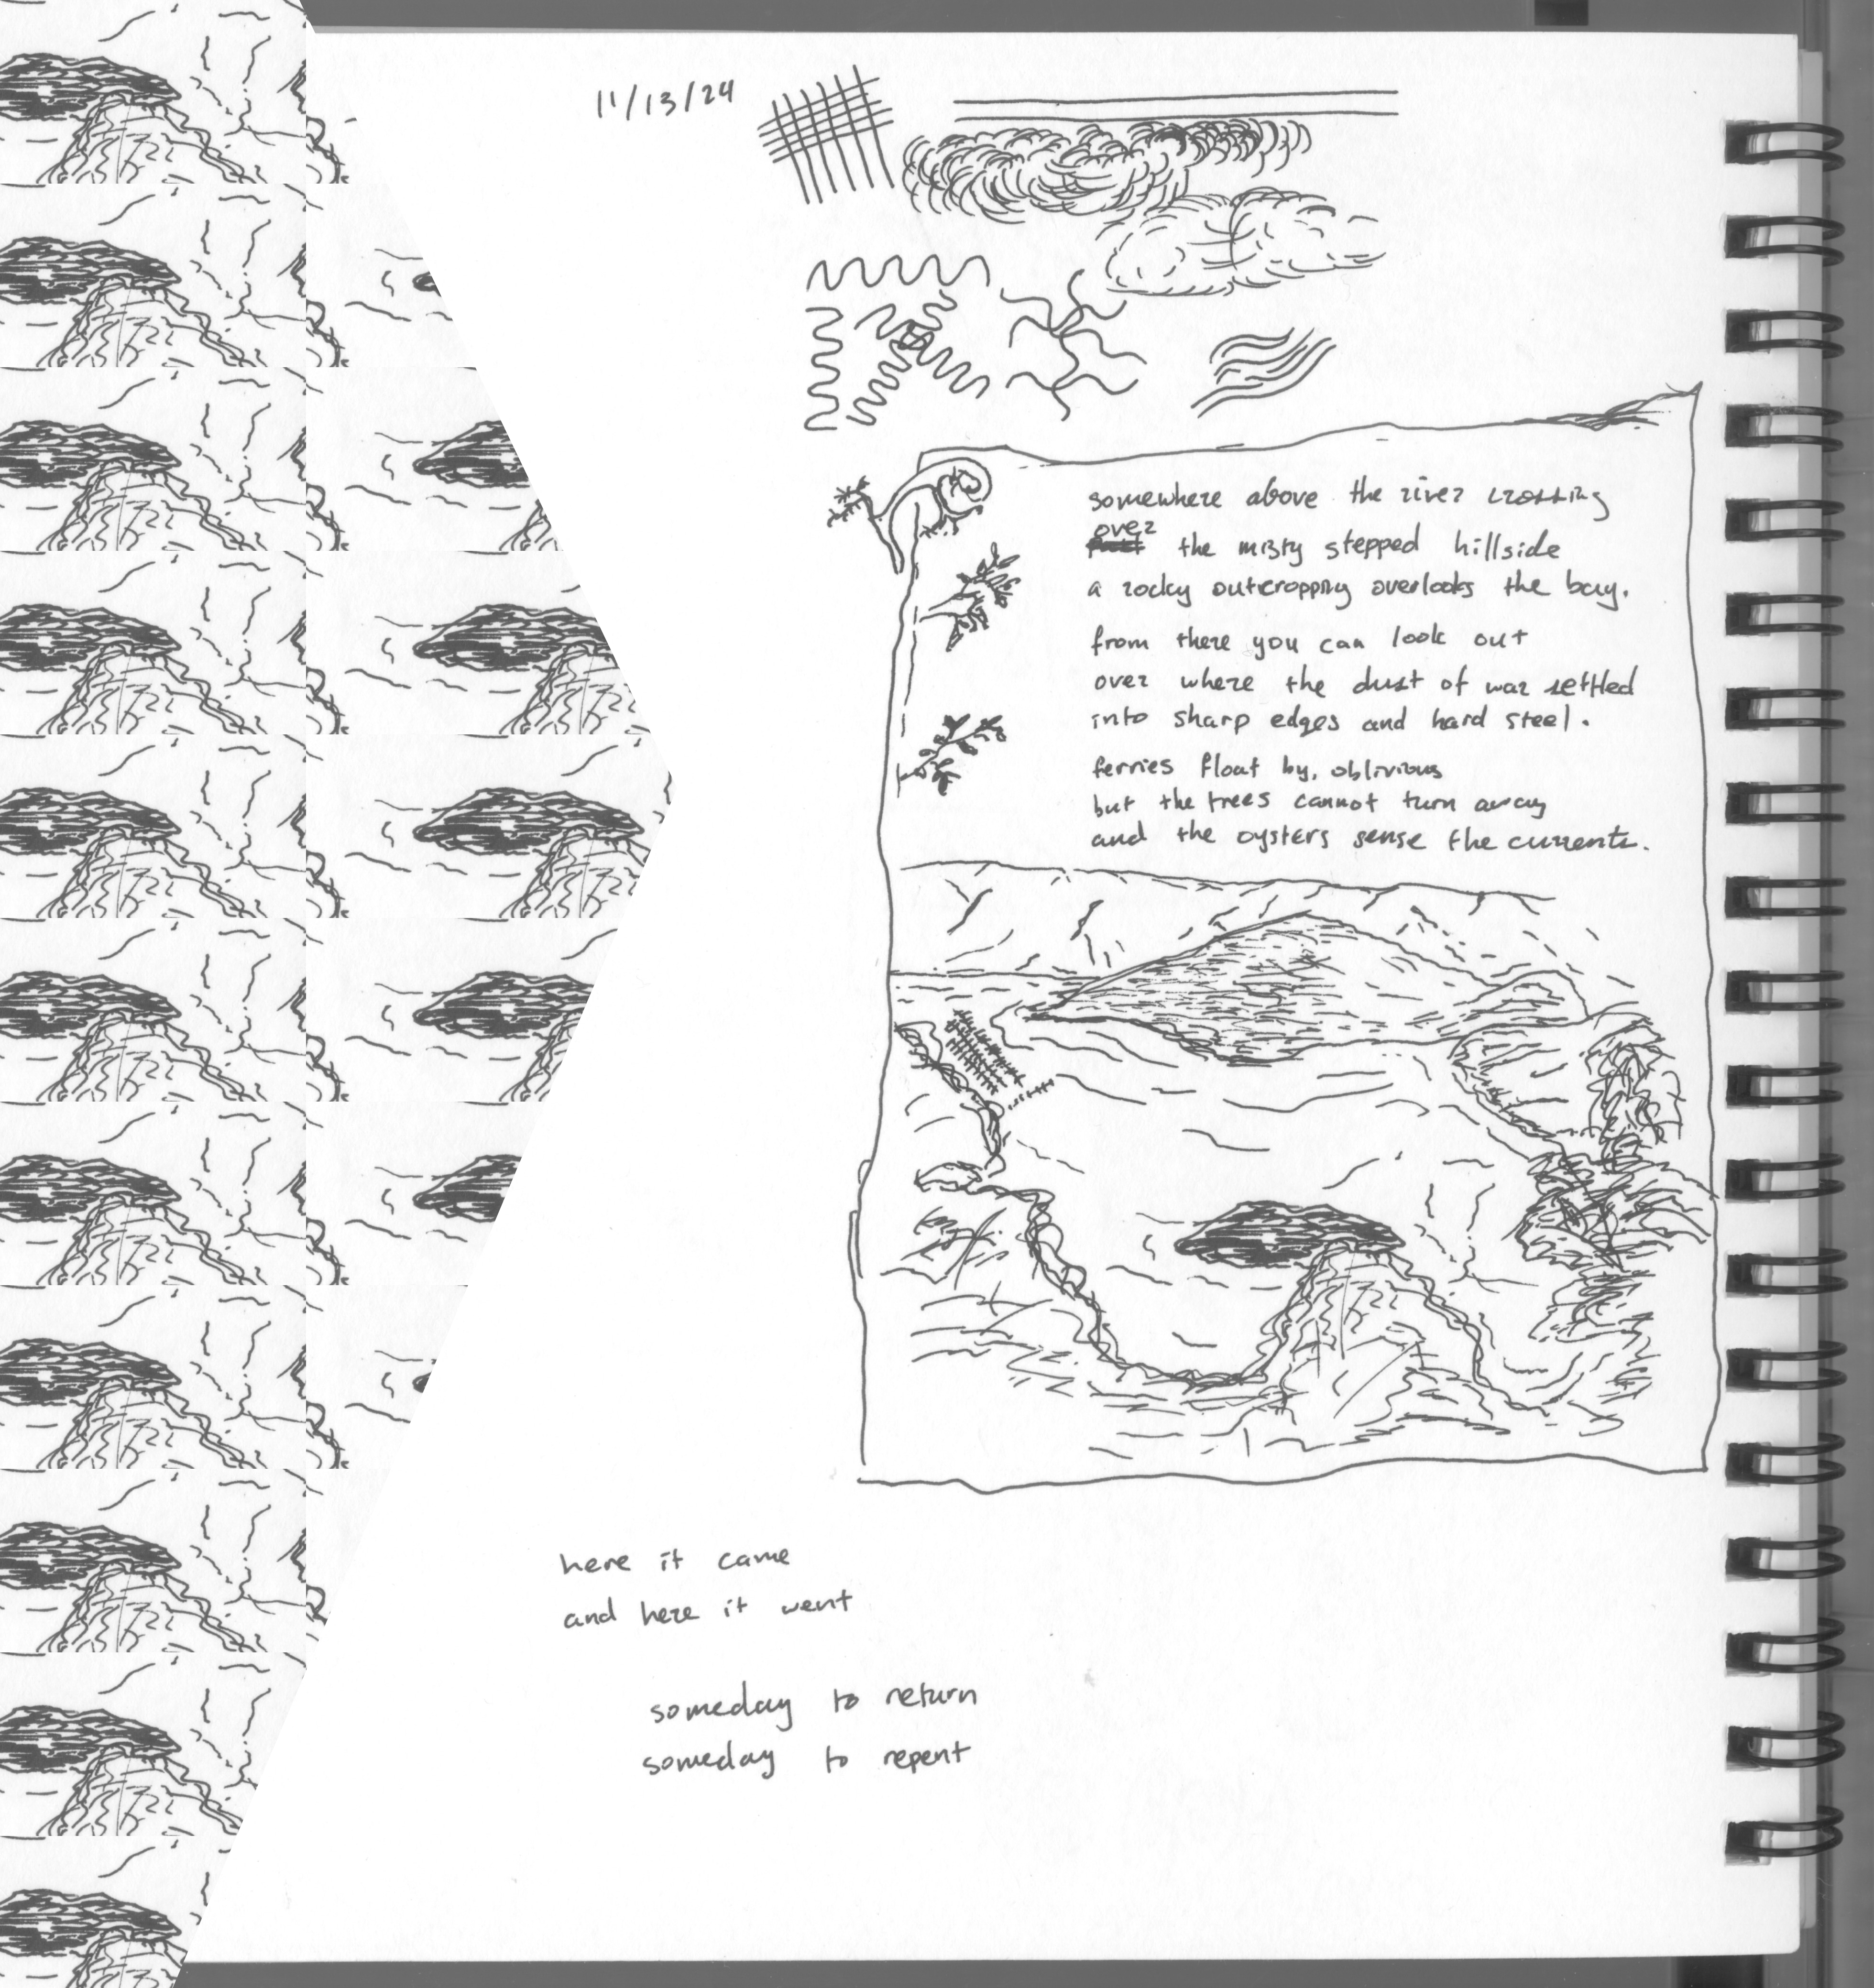 11/13/24
somewhere above the river crossing
over the misty stepped hillside
a rocky outcropping overlooks the bay.
from there you can look out
over where the dust of war settled
into sharp edges and hard steel.
ferries float by, oblivious
but the trees cannot turn away
and the oysters sense the currents.
here it came
and here it went
someday to return
someday to repent